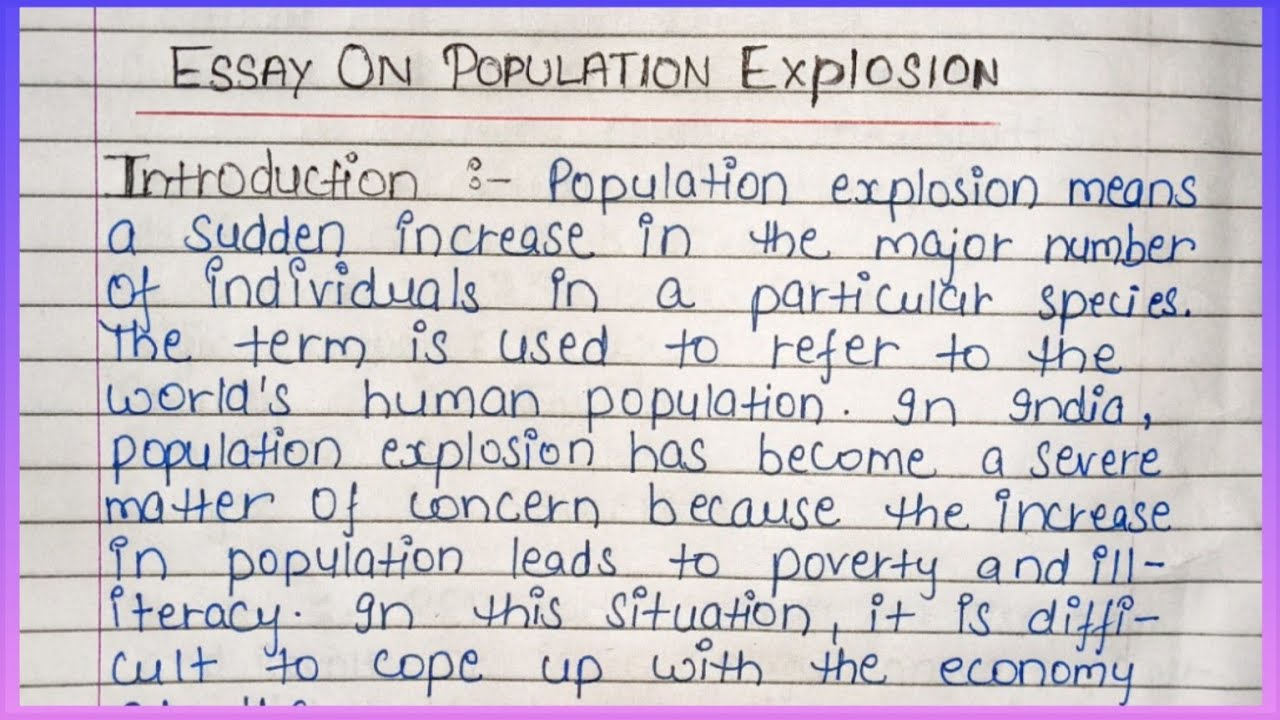 ESSAY ON POPULATION EXPLOSION
Introduction :- Population explosion means
a sudden increase in the major number
of individuals in a particular species.
The term is used to refer to the
world's human population. In India,
population explosion has become a severe
matter of concern because the increase
in population leads to poverty and ill-
iteracy. In this situation, it is diffi-
cult to cope up with the economy